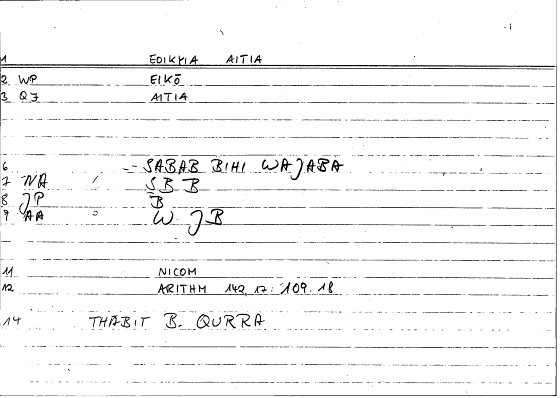 1 EOIKYIA AITIA
2 WP EIKŌ
3 QJ AITIA
6 - SABAB BIHI WAJABA
7 NA SB B
8 JP B
9 AA W JB
11 NICOM
12 ARITHM 142, 17: 109.18
14 THABIT B. QURRA